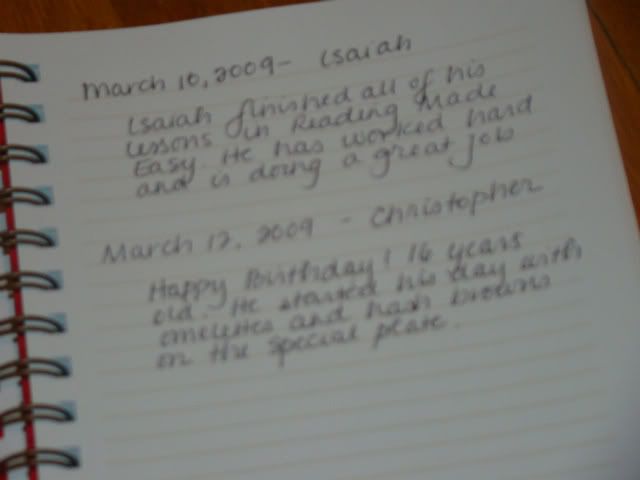 March 10, 2009 - Isaiah
Isaiah finished all of his
lessons in Reading Made
Easy. He has worked hard
and is doing a great job
March 12, 2009 - Christopher
Happy Birthday! 16 years
old. He started his day with
omelettes and hash browns
on the special plate.